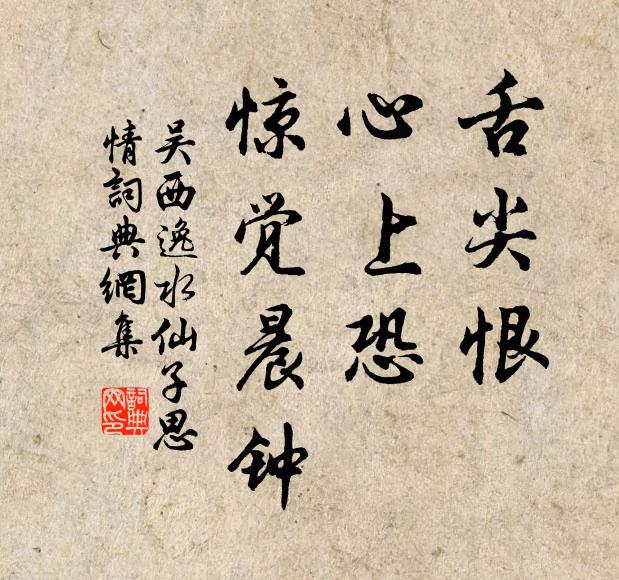 舌尖恨
心上恐
惊觉晨钟
吴西逸水仙子思
情詞典網集
詞典
网印